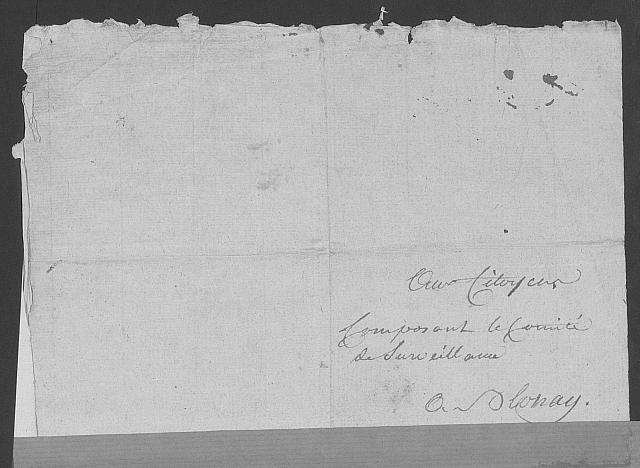 Aux Citoyens
Composant le Comité
de Surveillance
A